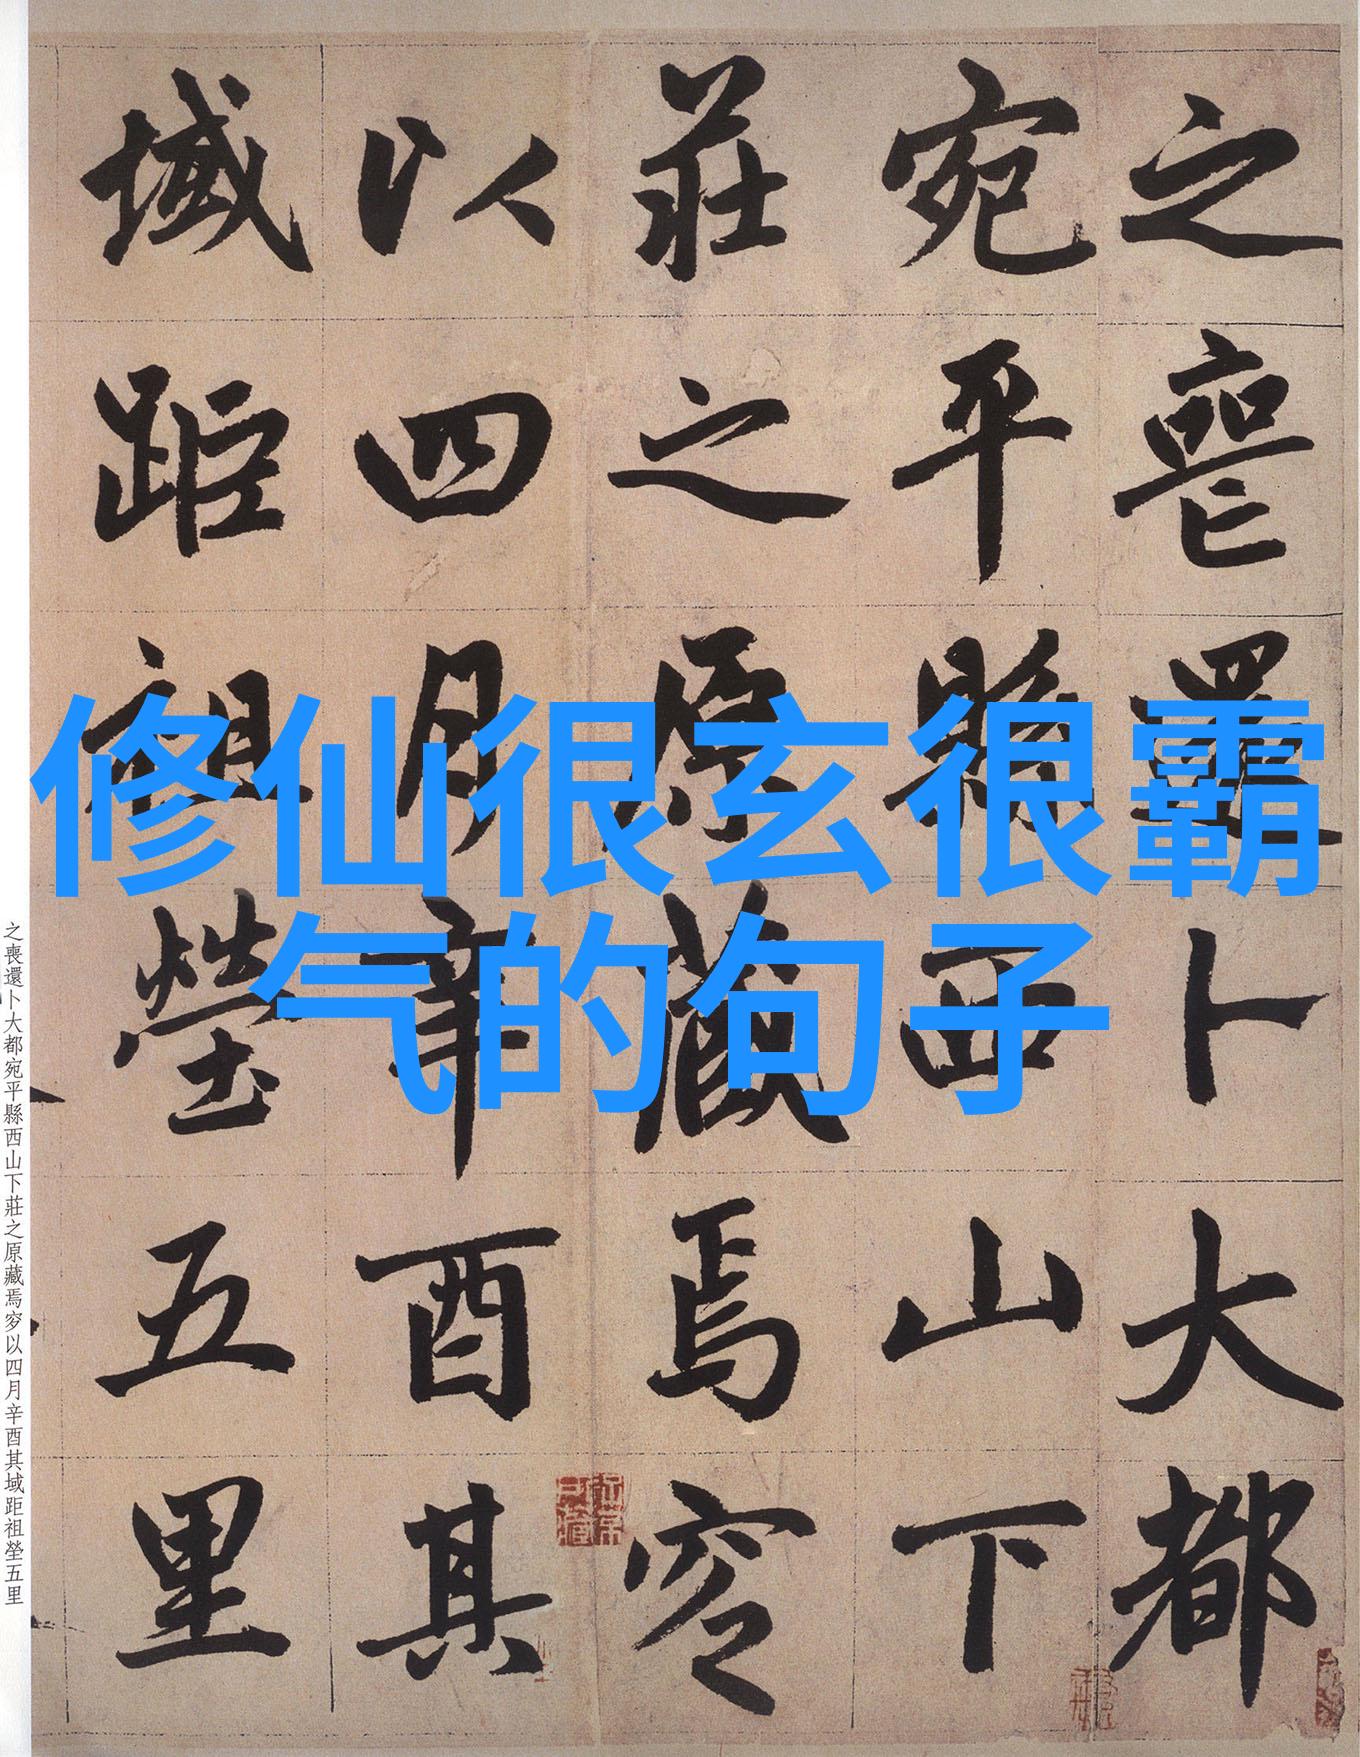 修仙很玄很霸
气的句子
之喪還卜大都
宛平縣西山下
莊之原藏焉穸
以四月辛酉其
域距祖塋五里
之喪還卜大都宛平縣西山下莊之原藏焉穸以四月辛酉其域距祖塋五里